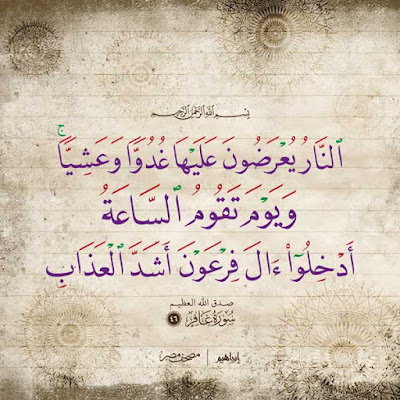 بسم الله الرحمن الرحيم
ٱلنَّارُ يُعْرَضُونَ عَلَيْهَا غُدُوًّا وَعَشِيًّا ۚ
وَيَوْمَ تَقُومُ ٱلسَّاعَةُ
أَدْخِلُوٓا۟ ءَالَ فِرْعَوْنَ أَشَدَّ ٱلْعَذَابِ
صدق الله العظيم
سُورَةُ غَافِر ٤٦
إبراهيم مصحف مصر